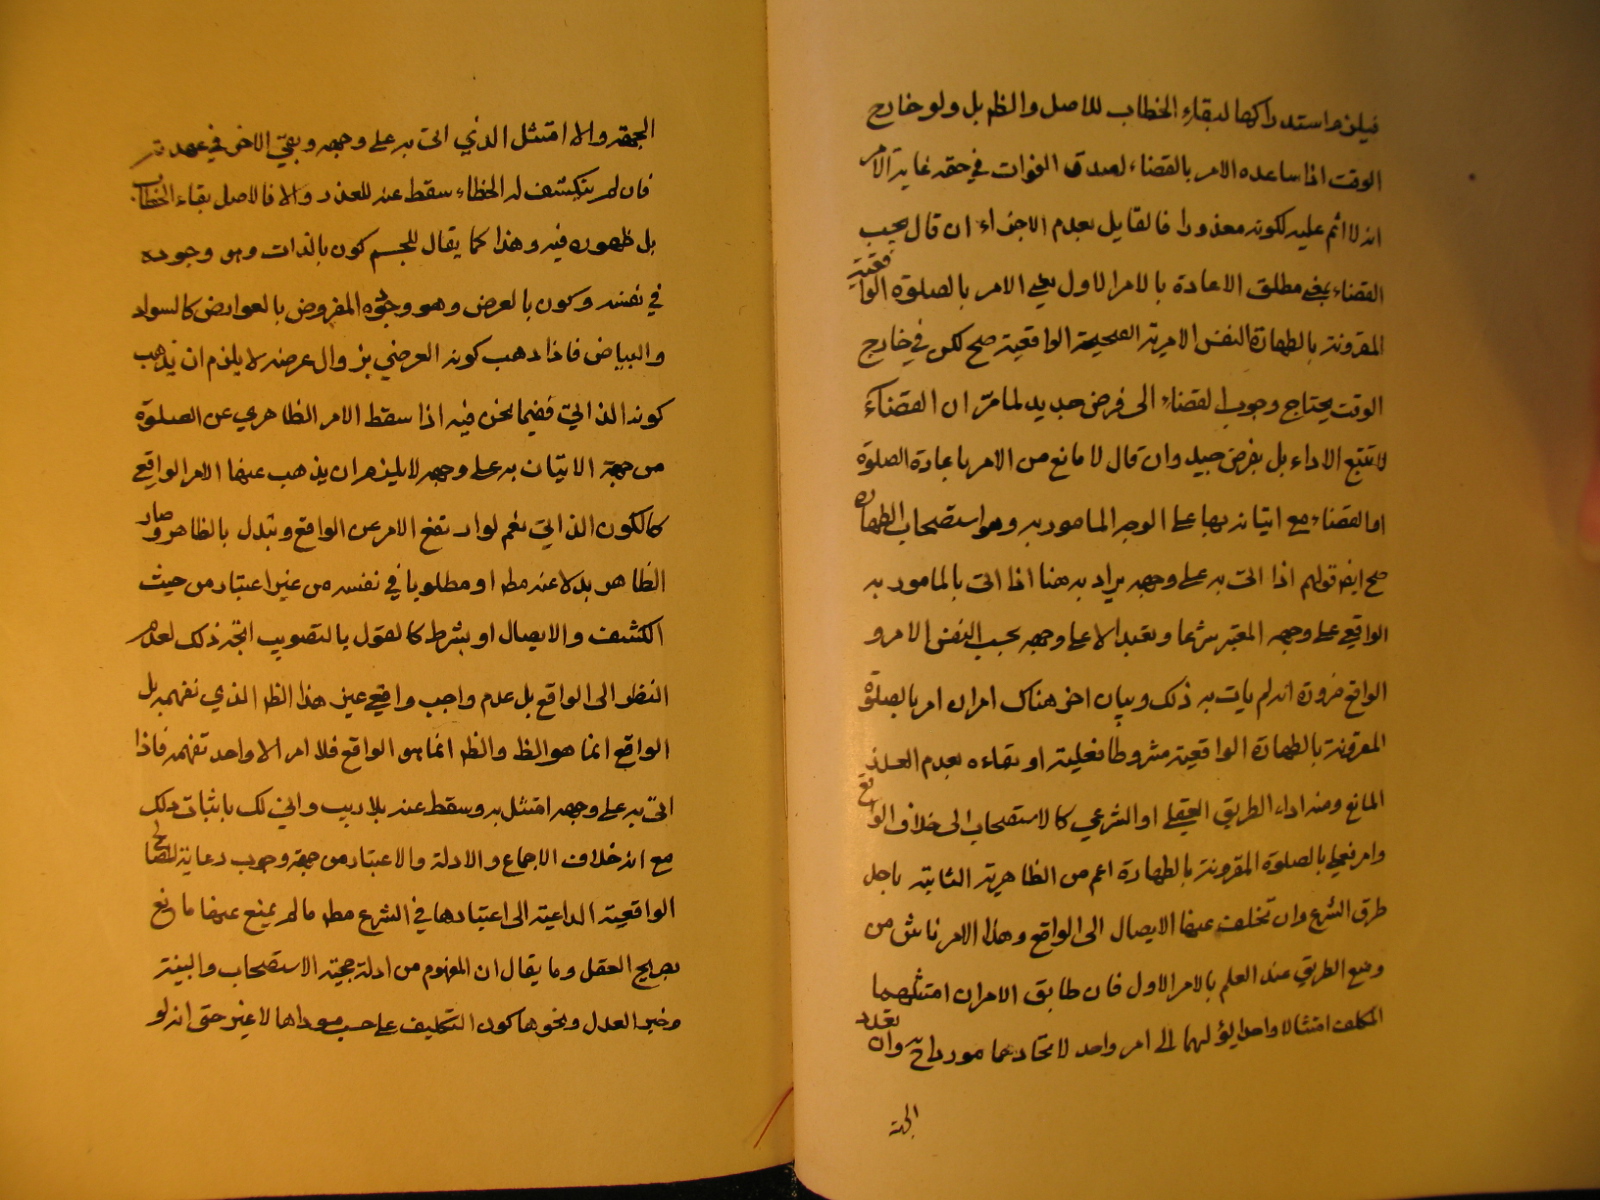 فيلزم استدراكها لبقاء الخطاب للاصل والظ بل ولو خارج
الوقت اذا ساعده الامر بالقضاء لصدق الفوات في حقه غاية الامر
انه لا اثم عليه لكونه معذورا فالقايل بعدم الاجزاء ان قال بجب
القضاء بمعنى مطلق الاعادة بالامر الاول يعني الامر بالصلوة الواقعية
المقرونة بالطهارة النفس الامرية الصحيحة الواقعية صح لكن في خارج
الوقت يحتاج وجوب القضاء الى فرض جديد لما مر ان القضاء
لا تتبع الاداء بل بفرض جديد وان قال لا مانع من الامر باعادة الصلوة
اما لقضاء مع اتيانه بها على الوجه المامور به وهو استصحاب الطهارة
صح ايض قولهم اذا اتى به على وجهه يراد به هنا اذا اتى بالمامور به
الواقعي على وجهه المعتبر شرعا وتعبدا لا على وجهه بحسب النفس الامر و
الواقع ضرورة انه لم يات به ذلك وبيان اخر هناك امران امر بالصلوة
المقرونة بالطهارة الواقعية مشروطا بفعليته او بقاءه بعدم العذر
المانع ومنه اداء الطريق العقلي او الشرعي كالاستصحاب الى خلاف الواقع
وامر فعلي بالصلوة المقرونة بالطهارة اعم من الظاهرية الثابتة باجل
طرق الشرع وان تخلف عنها الايصال الى الواقع وهذا الامر ناش من
وضع الطريق عند العلم بالامر الاول فان طابق الامران امتثلهما
المكلف امتثالا واحدا يؤلهما الى امر واحد لاتحادهما موردا ح وان تعدد
الجهة
الجهة والا امتثل الذي اتى به على وجهه وبقي الاخر في عهدته
فان لم ينكشف له الخطاء سقط عنه للعذر والا فالاصل بقاء الخطاب
بل ظهوره فيه وهذا كما يقال للجسم كون بالذات وهو وجوده
في نفسه وكون بالعرض وهو وجوده المفروض بالعوارض كالسواد
والبياض فاذا ذهب كونه العرضي بزوال عرضه لا يلزم ان يذهب
كونه الذاتي ففيما نحن فيه اذا سقط الامر الظاهري عن الصلوة
من جهة الاتيان به على وجهه لا يلزم ان يذهب عنها الامر الواقعي
كالكون الذاتي نعم لو ارتفع الامر عن الواقع وتبدل بالظاهر وصار
الظاهر بدلا عنه مط او مطلوبا في نفسه من غير اعتبار من حيث
الكشف والايصال او بشرط كالقول بالتصويب اتجه ذلك لعدم
النظر الى الواقع بل عدم واجب واقعي غير هذا الظ الذي نفهمه بل
الواقع انما هو الظ والظ انما هو الواقع فلا امر الا واحد تفهمه فاذا
اتى به على وجهه امتثل به وسقط عنه بلا ريب وانى لك باثبات ذلك
مع انه خلاف الاجماع والادلة والاعتبار من جهة وجوب رعاية المصالح
الواقعية الداعية الى اعتبارها في الشرع مط ما لم يمنع عنها مانع
بصريح العقل وما يقال ان المفهوم من ادلة حجية الاستصحاب والبينة
وخبر العدل ونحوها كون التكليف على حسب موداها لا غير حتى انه لو